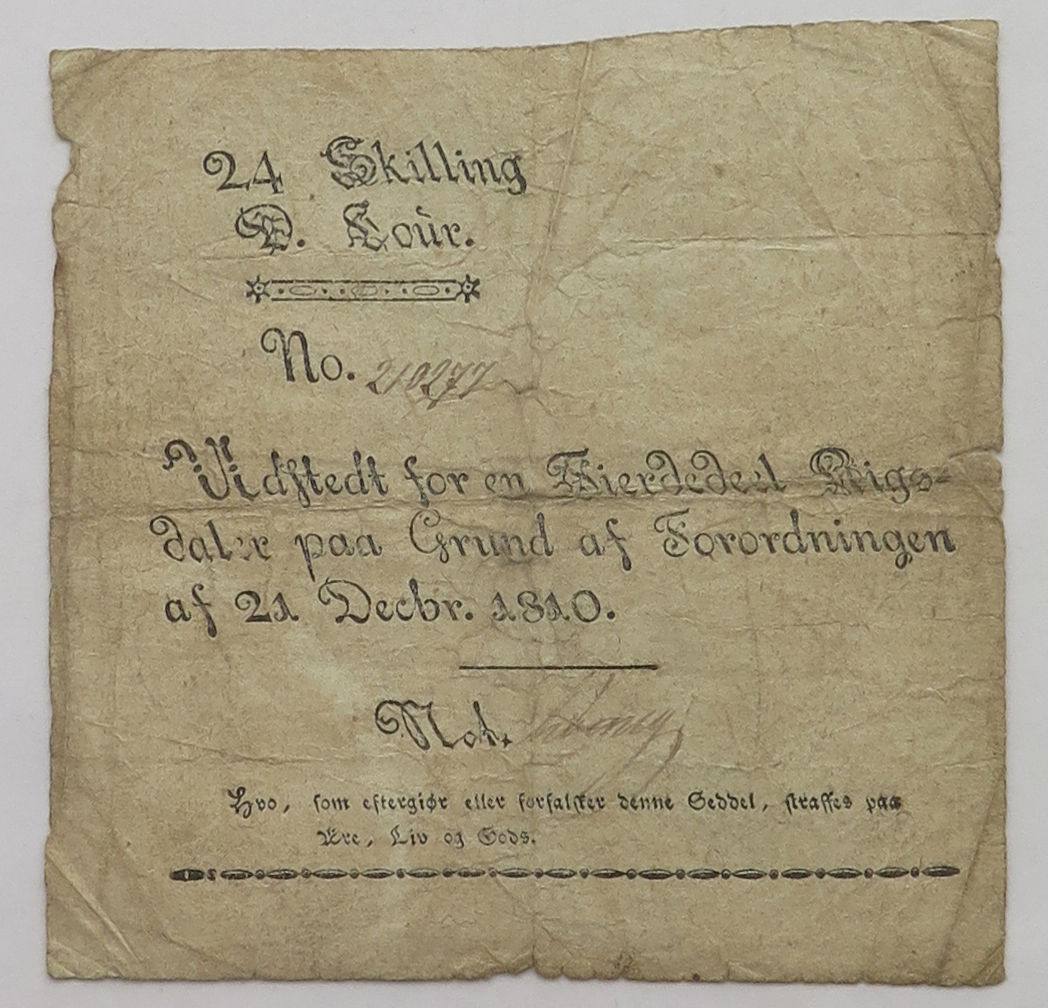 24 Skilling
D. Cour.
No. 210277
Vidstedt for en Fierdedeel Rigs-
daler paa Grund af Forordningen
af 21 Decbr. 1810.
Not.
Hvo, som eftergiør eller forfalsker denne Seddel, straffes paa
Ære, Liv og Gods.